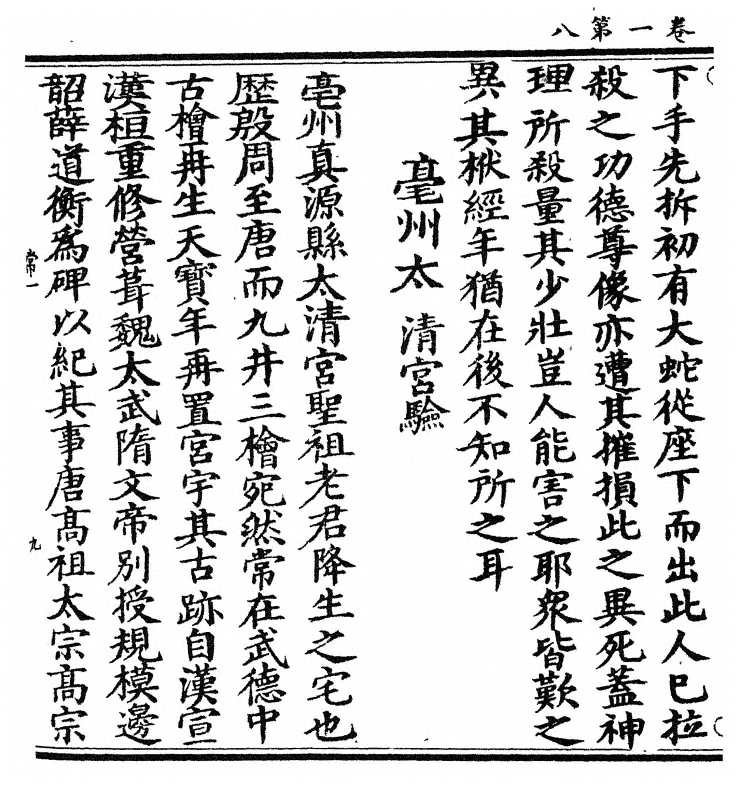 卷一第八
下手先拆初有大蛇從座下而出此人已拉
殺之功德尊像亦遭其摧損此之異死蓋神
理所殺量其少壯豈人能害之耶衆皆歎之
異其栿經年猶在後不知所之耳
亳州太清宮驗
亳州真源縣太清宮聖祖老君降生之宅也
歷殷周至唐而九井三檜宛然常在武德中
古檜再生天寶年再置宮宇其古跡自漢宣
漢桓重修營葺魏太武隋文帝別授規模邊
韶薛道衡爲碑以紀其事唐髙祖太宗髙宗
常一
九